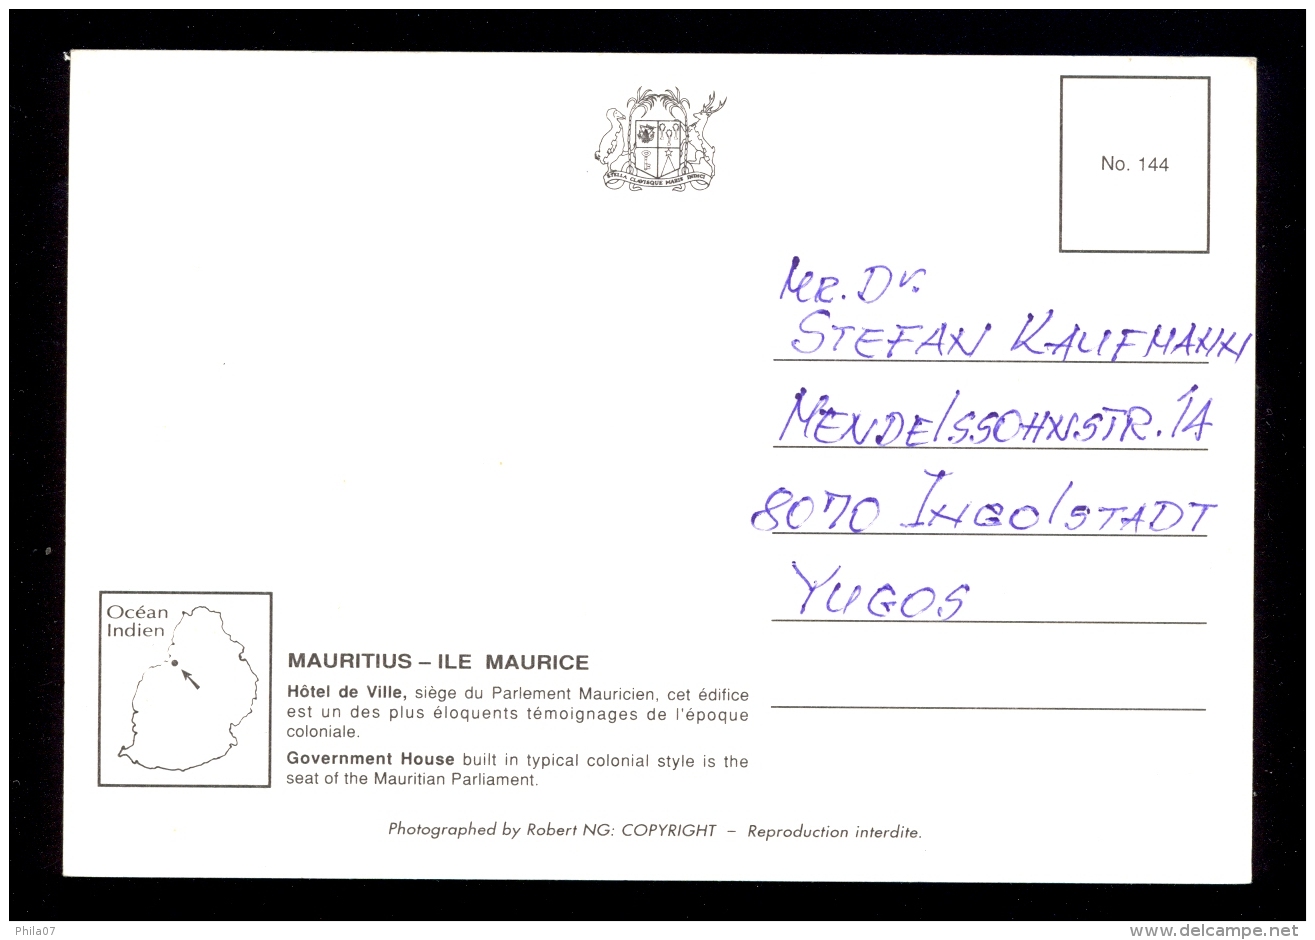 STELLA CLAVISQUE MARIS INDICI
No. 144
MR. Dr.
STEFAN KAUFMANN
MENDElSSOHNSTR. 1A
8070 INGOlSTADT
YUGOS
Océan
Indien
MAURITIUS – ILE MAURICE
Hôtel de Ville, siège du Parlement Mauricien, cet édifice
est un des plus éloquents témoignages de l'époque
coloniale.
Government House built in typical colonial style is the
seat of the Mauritian Parliament.
Photographed by Robert NG: COPYRIGHT – Reproduction interdite.
Phila07
www.delcampe.net